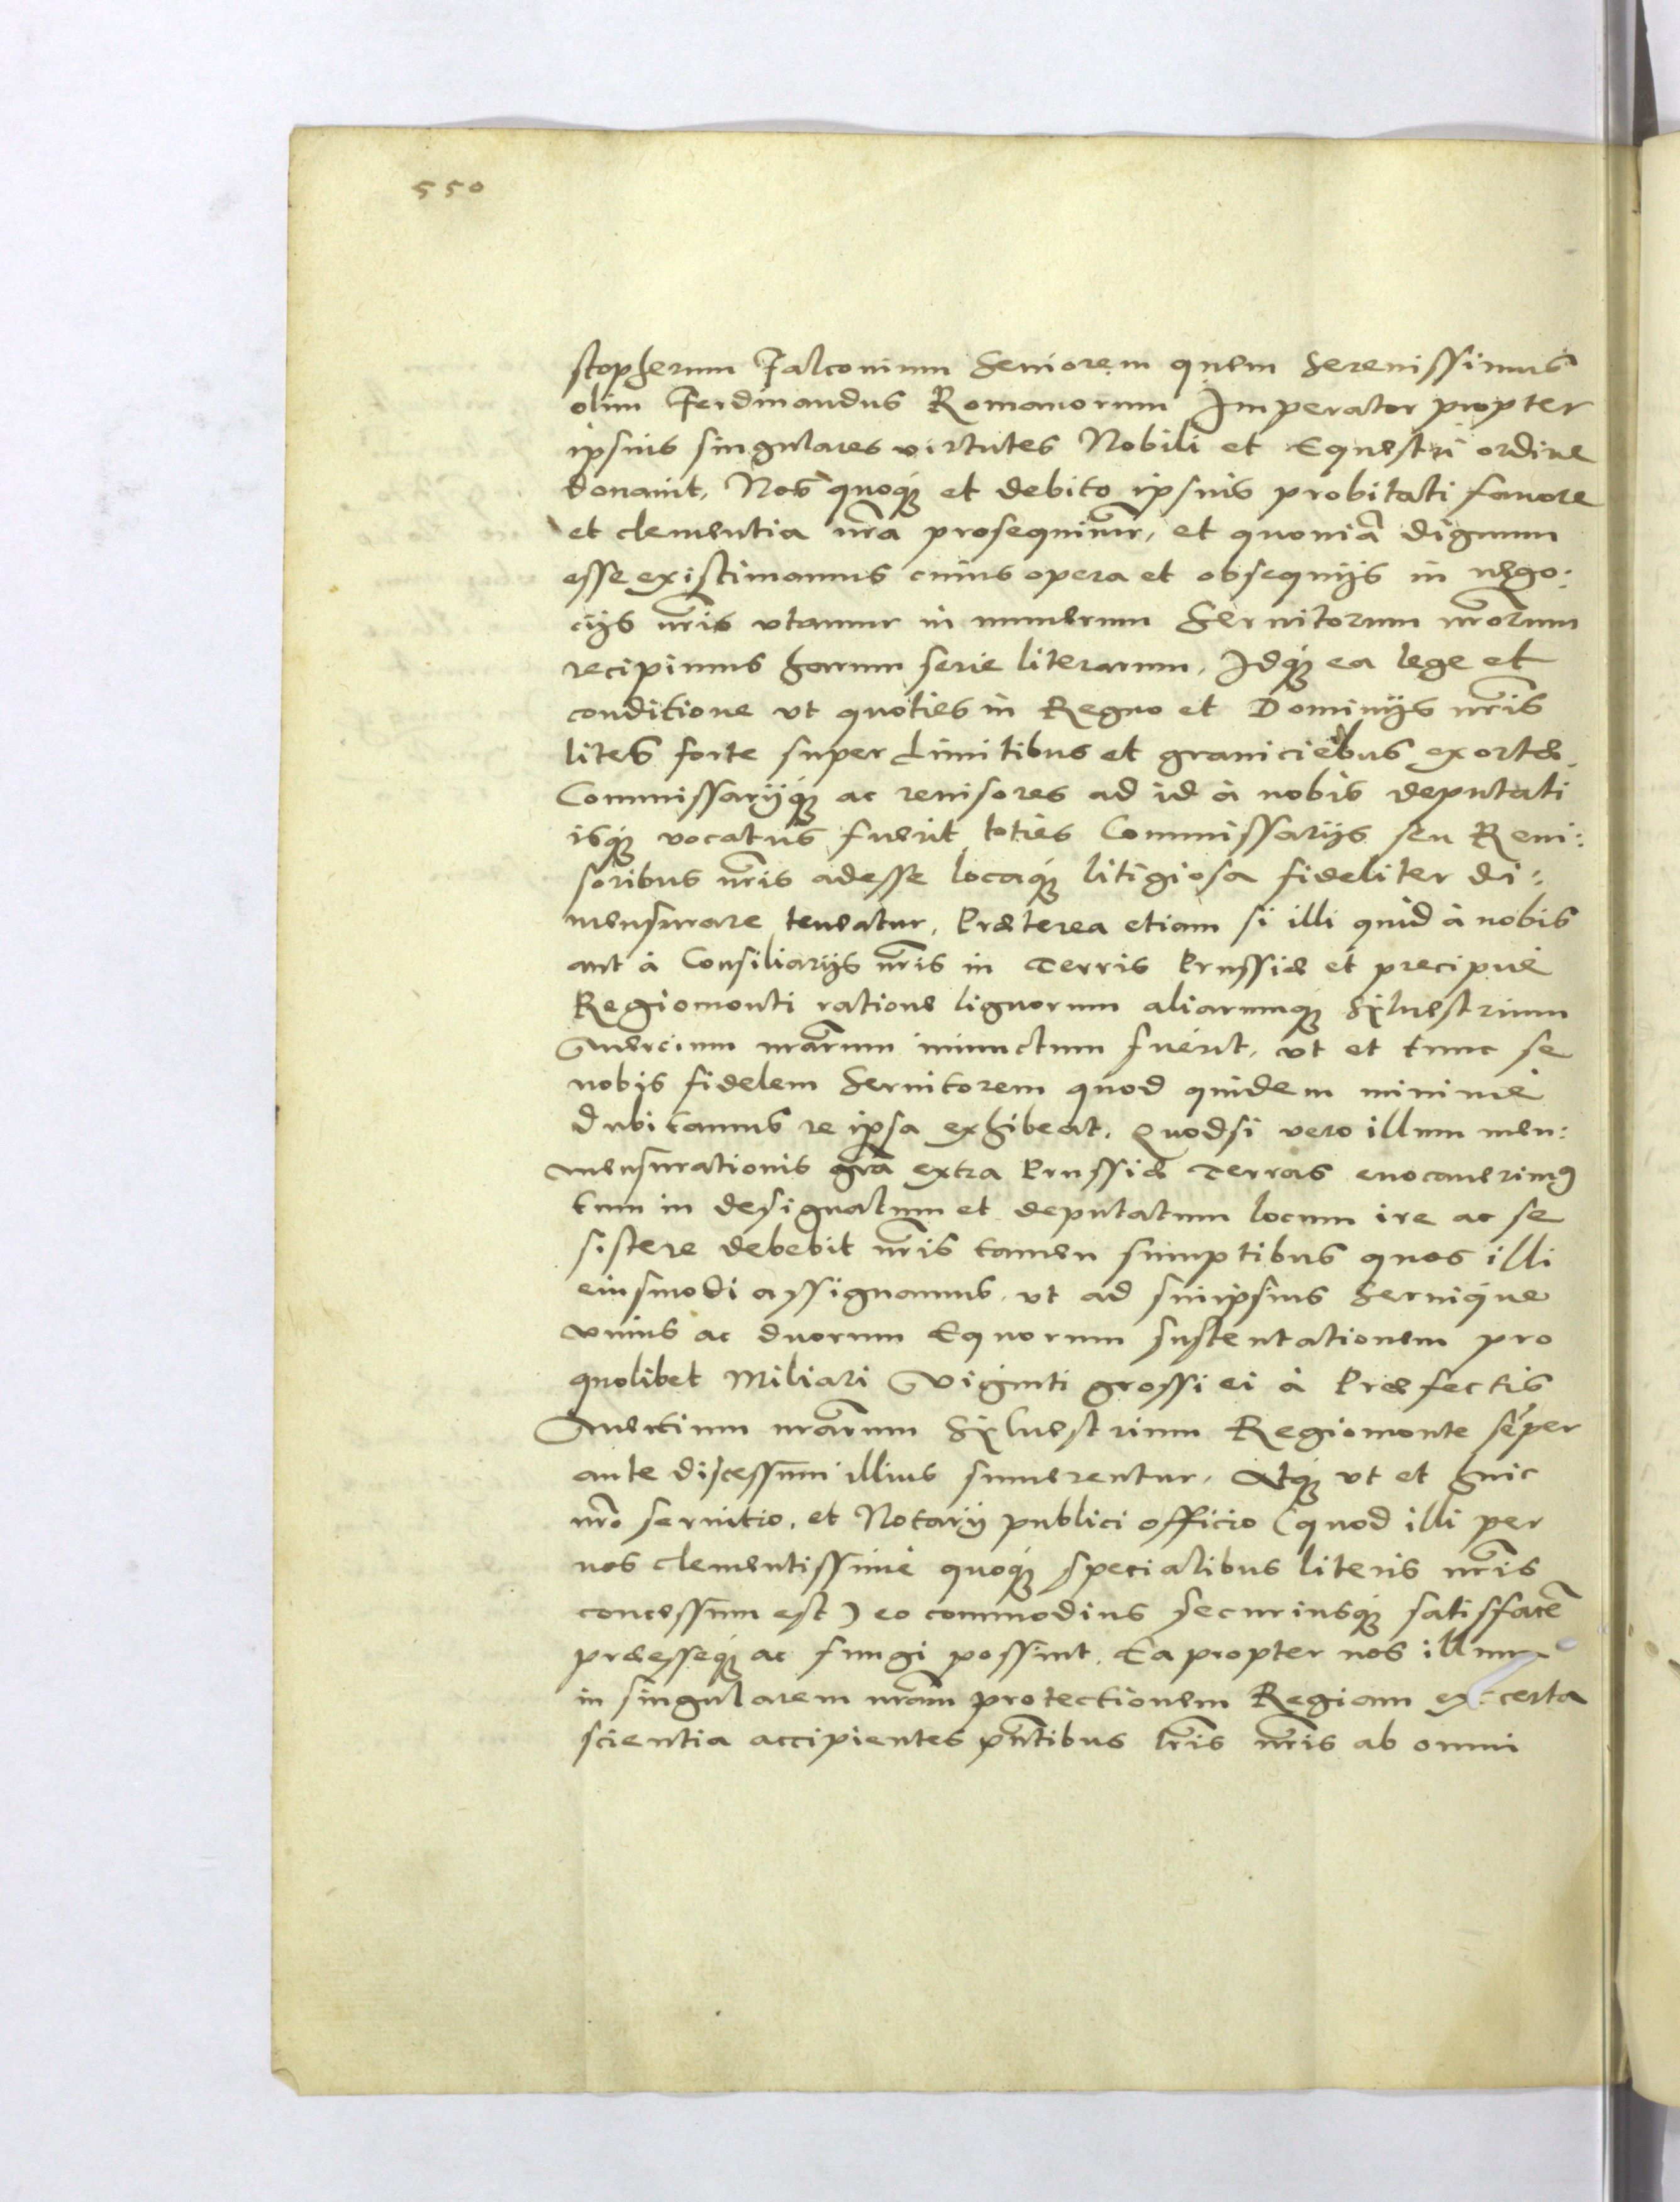 550
stopherum Falconium Seniorem quem Serenissimus
olim Ferdinandus Romanorum Imperator propter
ipsius singulares virtutes Nobili et Equestri ordine
donauit, Nos quoq; et debito ipsius probitati fauore
et clementia nr̃a prosequimur, et quoniã dignum
esse existimamus cuius opera et obsequijs in nego:
cijs nr̃is vtamur in numerum Seruitorum nr̃orum
recipimus harum serie literarum, Idq; ea lege et
conditione vt quoties in Regno et Dominijs nr̃is
lites forte super Limitibus et graniciebus exortæ,
Commissarijq; ac reuisores ad id à nobis deputati
isq; vocatus fuerit toties Commissarijs seu Reui:
soribus nr̃is adesse locaq; litigiosa fideliter di:
mensurare teneatur, Præterea etiam si illi quid à nobis
aut à Consiliarijs nr̃is in Terris Prussiæ et precipuè
Regiomonti ratione lignorum aliarumq; Syluestrium
Mercium nr̃arum iniunctum fuerit, vt et tunc se
nobis fidelem Seruitorem quod quidem minimè
dubitamus re ipsa exhibeat. Quodsi vero illum men:
mensurationis grã extra Prussiæ Terras euocauerimus
tum in designatum et deputatum locum ire ac se
sistere debebit nr̃is tamen sumptibus quos illi
eiusmodi assignamus, vt ad suiipsius Seruique
vnius ac duorum Equorum sustentationem pro
quolibet Miliari Viginti grossi ei à Præfectis
Mercium nr̃arum Syluestrium Regiomonte sẽper
ante discessum illius numerentur, Atq; vt et huic
nr̃o seruitio, et Notarij publici officio (quod illi per
nos clementissimè quoq; specialibus literis nr̃is
concessum est) eo commodius securiusq; satisfacẽ
præesseq; ac fungi possint. Ea propter nos illum
in singularem nr̃am protectionem Regiam ex certa
scientia accipientes pñtibus lr̃is nr̃is ab omni